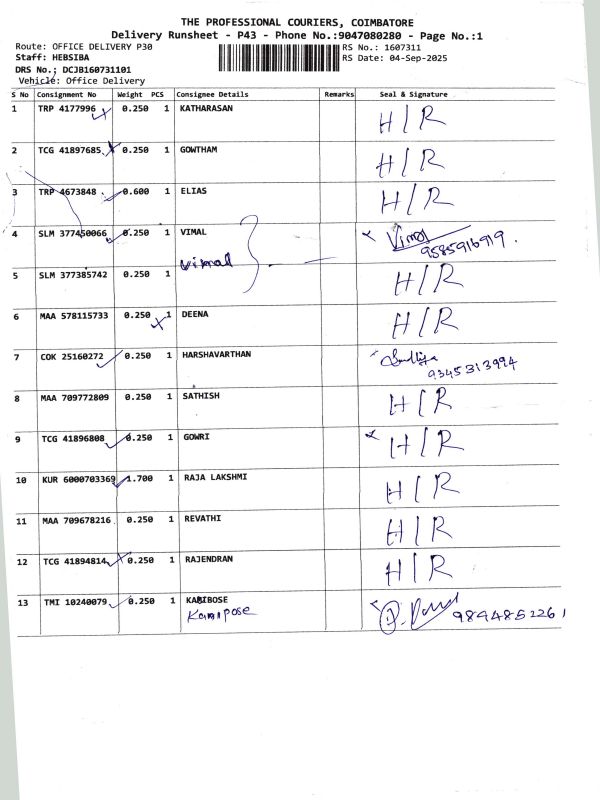 THE PROFESSIONAL COURIERS, COIMBATORE
Delivery Runsheet - P43 - Phone No.:9047080280 - Page No.:1
Route: OFFICE DELIVERY P30 RS No.: 1607311
Staff: HEBSIBA RS Date: 04-Sep-2025
DRS No.: DCJB160731101
Vehicle: Office Delivery
S No Consignment No Weight PCS Consignee Details Remarks Seal & Signature
1 TRP 4177996 0.250 1 KATHARASAN H/R
2 TCG 41897685 0.250 1 GOWTHAM H/R
3 TRP 4673848 0.600 1 ELIAS H/R
4 SLM 377450066 0.250 1 VIMAL Vimal
9585916919.
vimal
5 SLM 377385742 0.250 1 H/R
6 MAA 578115733 0.250 1 DEENA H/R
7 COK 25160272 0.250 1 HARSHAVARTHAN
9345313994
8 MAA 709772809 0.250 1 SATHISH H/R
9 TCG 41896808 0.250 1 GOWRI H/R
10 KUR 6000703369 1.700 1 RAJA LAKSHMI H/R
11 MAA 709678216 0.250 1 REVATHI H/R
12 TCG 41894814 0.250 1 RAJENDRAN H/R
13 TMI 10240079 0.250 1 KABIBOSE
Kabipose 9894852261